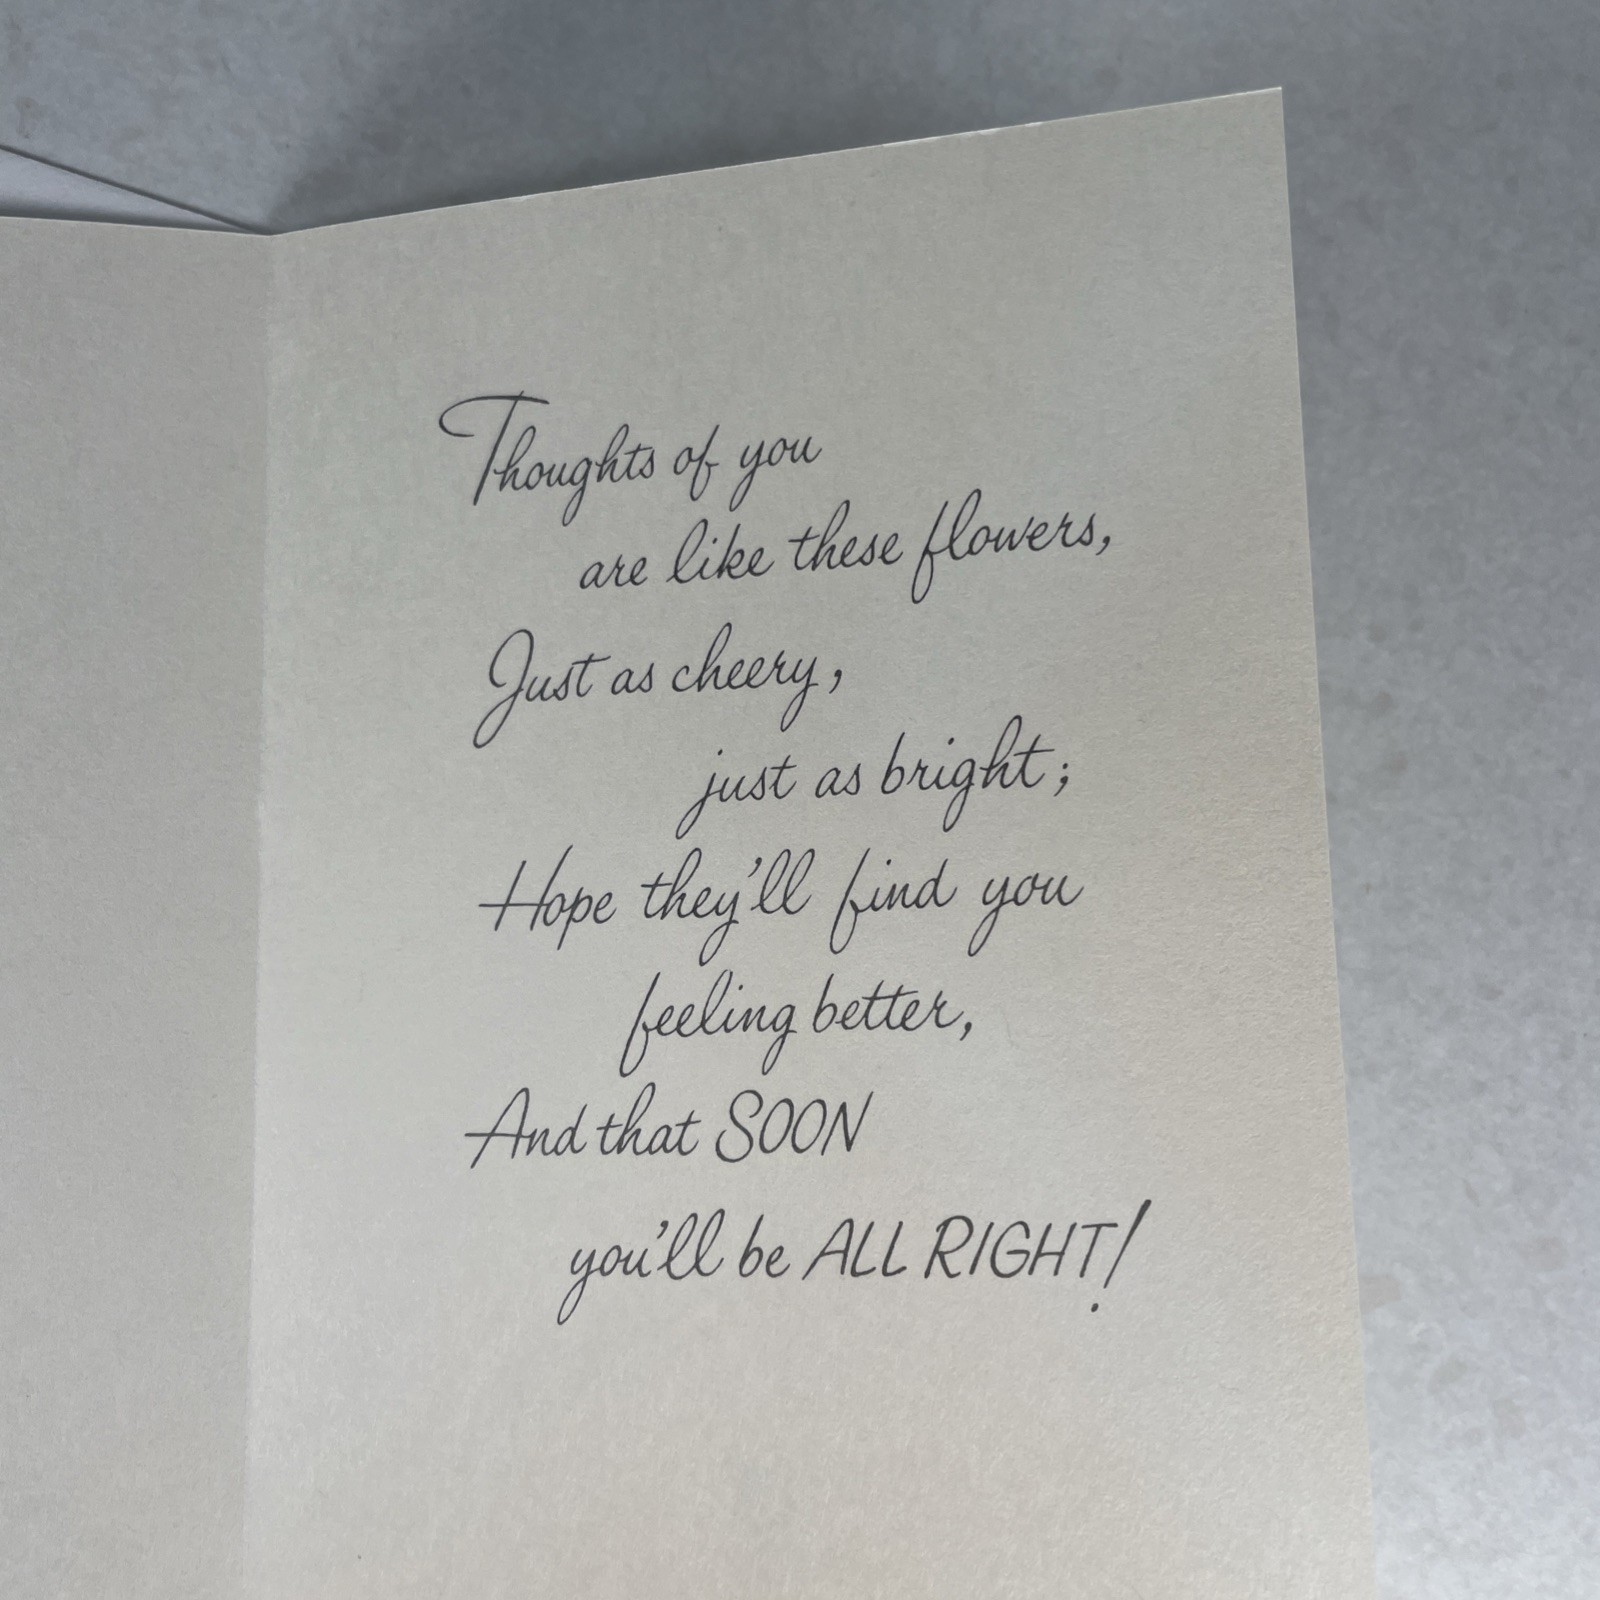 Thoughts of you
are like these flowers,
Just as cheery,
just as bright;
Hope they'll find you
feeling better,
And that SOON
you'll be ALL RIGHT!